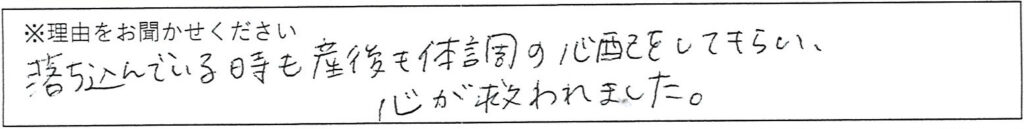 ※理由をお聞かせください
落ち込んでいる時も産後も体調の心配をしてもらい、
心が救われました。